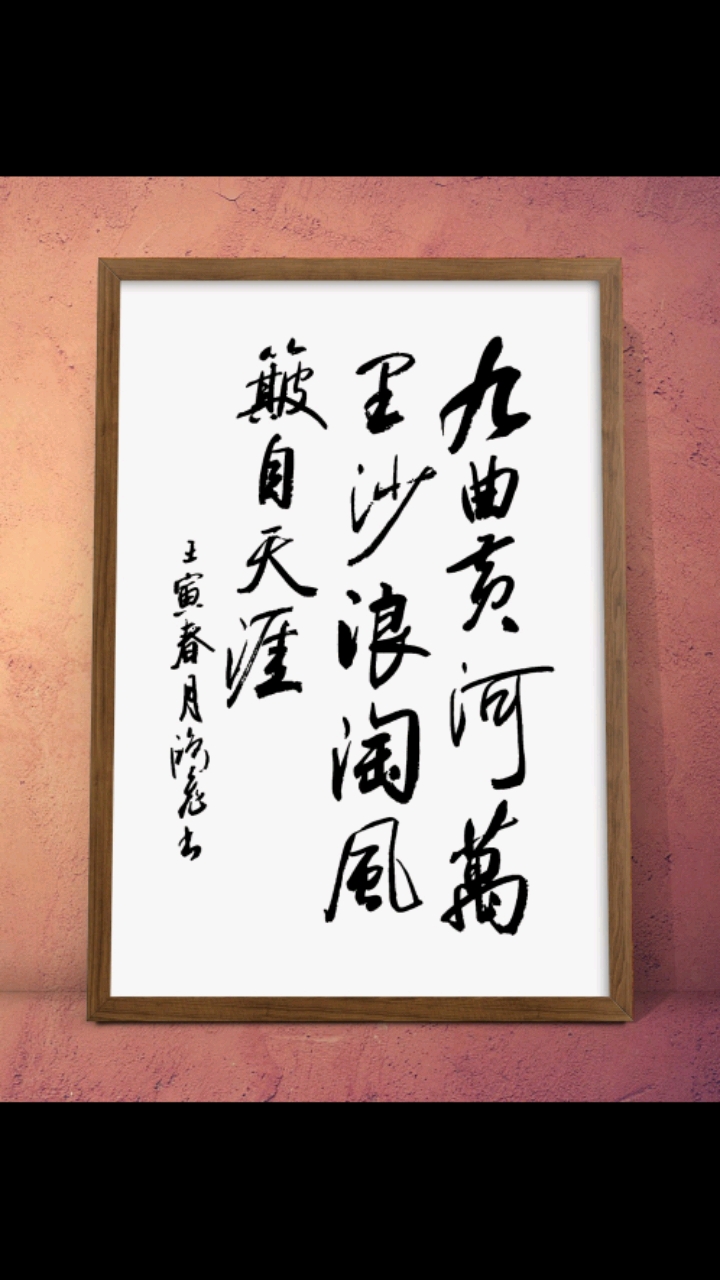 九曲黄河萬
里沙浪淘風
簸自天涯
壬寅春月